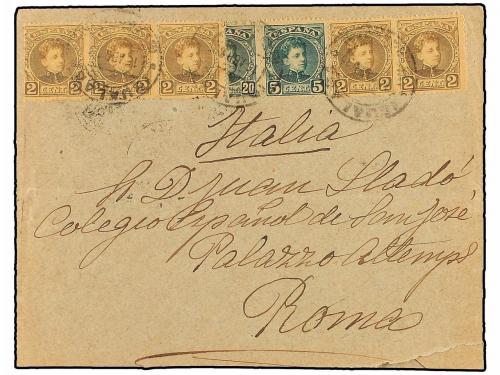 ESPAÑA ESPAÑA ESPAÑA ESPAÑA ESPAÑA ESPAÑA
2 CENTS 2 2 CENTS 2 2 CENTS 2 20 5 CENTS 5 2 CENTS 2 2 CENTS 2
Italia
D. Juan Lladó
Colegio Español de San José
Palazzo Altemps
Roma